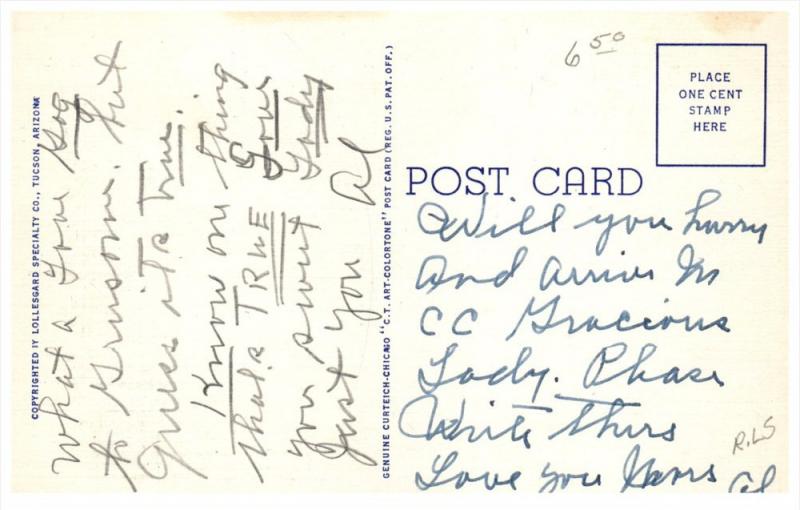 COPYRIGHTED BY LOLLESGARD SPECIALTY CO., TUCSON, ARIZONA
what a
to Gruesome. but
Guess its True.
I Know one thing
thats TRUE Love
you sweet Lady
Just you Al
GENUINE CURTEICH-CHICAGO "C.T. ART-COLORTONE" POST CARD (REG. U.S. PAT. OFF.)
6 50
PLACE
ONE CENT
STAMP
HERE
POST CARD
Will you hurry
And Arrive In
CC Gracious
Lady. Please
Write Thurs
Love you
Al
RLS